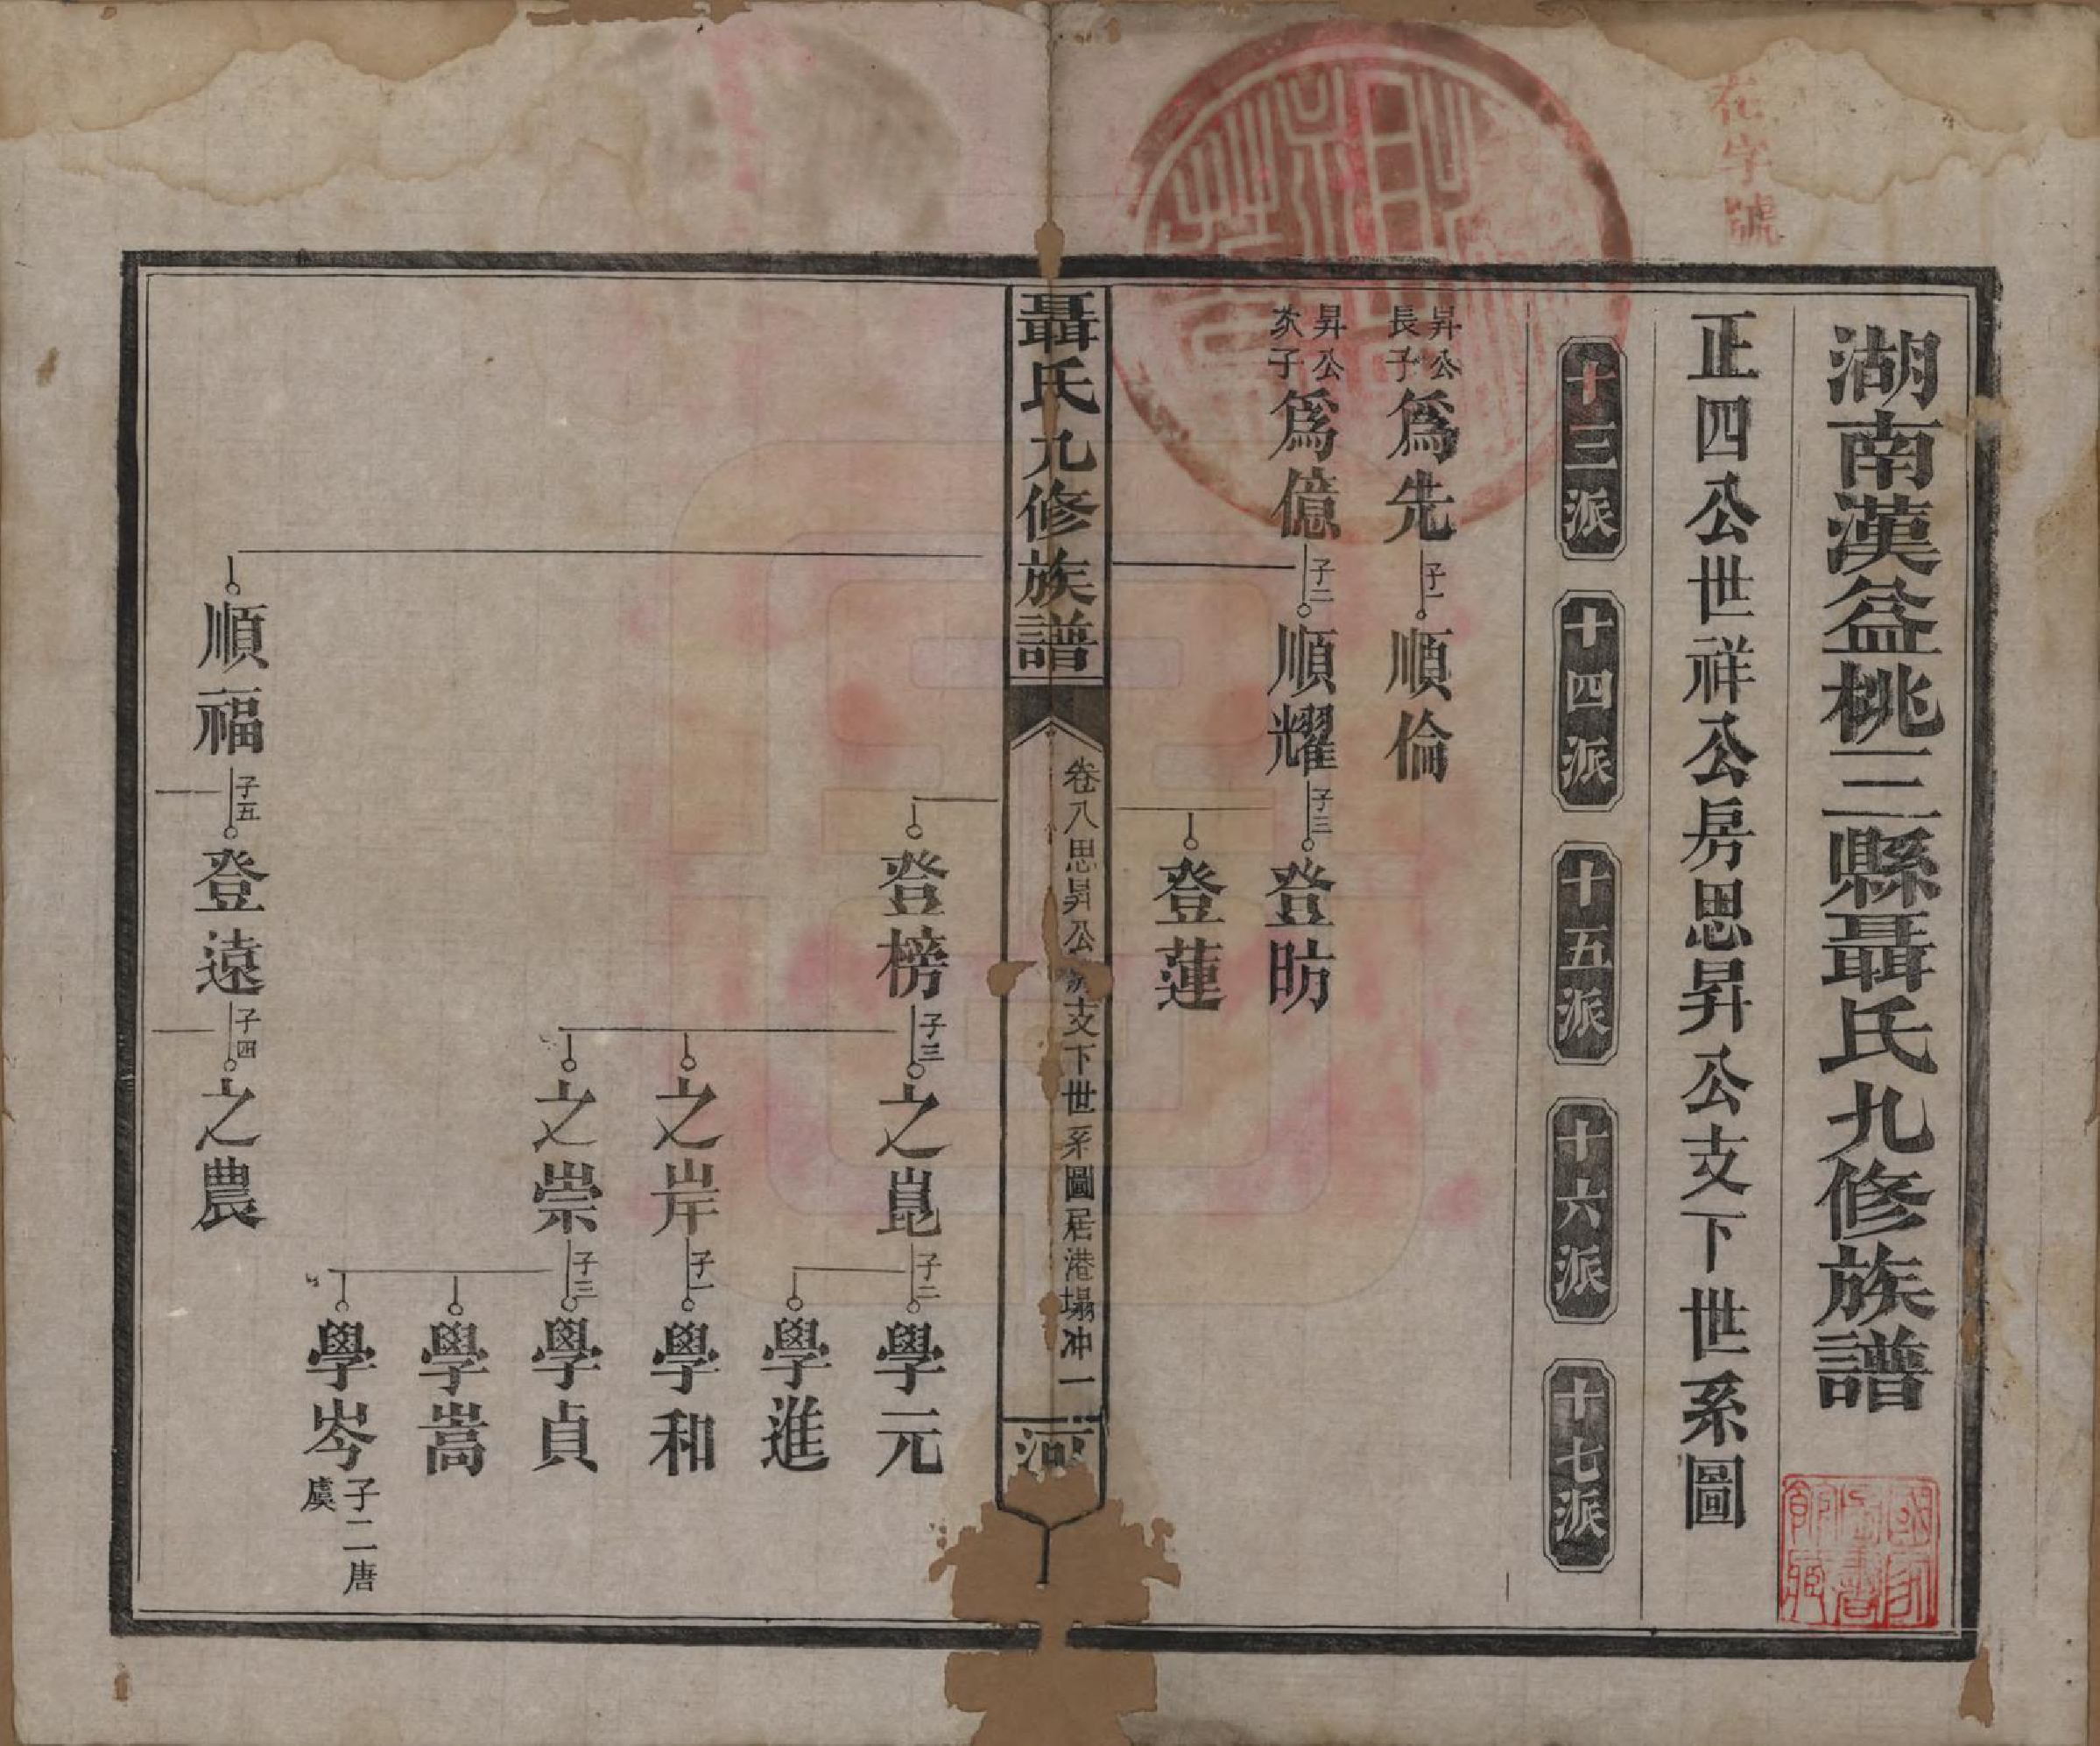 在字號
湖南漢益桃三縣聶氏九修族譜
正四公世祥公房思昇公支下世系圖
十三派
十四派
十五派
十六派
十七派
昇公長子爲先
子一
順倫
昇公次子爲億
子二
順耀
子三
登昉
登蓮
聶氏九修族譜
卷八思昇公房支下世系圖居港塌冲
一
河
登榜
子三
之崑
子二
學元
學進
之岸
子一
學和
之崇
子三
學貞
學嵩
學岑
子二唐虞
順福
子五
登遠
子四
之農
國家圖書館藏